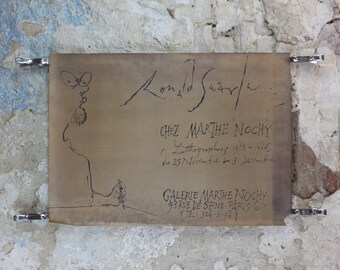 Ronald Searle
CHEZ MARTHE NOCHY
Lithographies
du 25 Novembre au
GALERIE MARTHE NOCHY
RUE DE SEINE PARIS 6